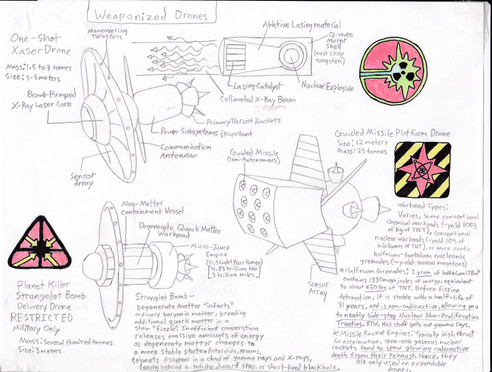 Weaponized Drones
One-Shot
Xaser Drone
Mass: 1.5 to 3 tonnes
Size: 3-5 meters
Maneuvering
Thrusters
Bomb-Pumped
X-Ray Laser Core
Ablative Lasing material
Q-state
Mirror
Shell
(most likely
tungsten)
Lasing Catalyst
Collimated X-Ray Beam
Nuclear Explosive
Primary Thrust Rockets
Power Subsystems/Propellant
Communication
Antennae
Sensor
Array
Guided Missile Platform Drone
Size: 12 meters
Mass: 25 tonnes
Guided Missile
(Semi-Autonomous)
Sensor
Array
Warhead Types:
Varies, some conventional
chemical warheads (~yield 100%
of kg TNT), conventional
nuclear warheads (~yield 10% of
kilotons of TNT), or more exotic
hafnium-tantalum nuclear
grenades (~yield: several megatons)
*Hafnium Grenades: 1 gram of hafnium 178m²
contains 1330 megajoules of energy, equivalent
to about 630 lbs of TNT. Before fission
detonation. It is stable with a half-life of
31 years, and is non-radioactive, allowing you
to neatly side-step Nuclear Non-Proliferation
Treaties. BTW, this stuff gets out gamma rays.
*Missile Rocket Engines: Typically high thrust
for acceleration, open-core gaseous nuclear
rockets tend to spew glowing radioactive
death from their exhaust. Hence, they
are only used on expendable
drones.
Mag-Matter
Containment Vessel
Degenerate Quark Matter
Warhead
Micro-Jump
Engine
Planet Killer
Strangelet Bomb
Delivery Drone
RESTRICTED
Military Only
Mass: Several Hundred tonnes
Size: 3 meters
Strangelet Bomb-
Degenerate Matter "infects"
ordinary baryonic matter, breeding
additional quark matter in a
slow "fizzle". Inefficient conversion
releases massive amounts of energy
as degenerate matter changes to
a more stable state. Asteroids, moons,
planets, disappear in a cloud of gamma rays and x-rays,
leaving behind a white dwarf star or short-lived black hole.